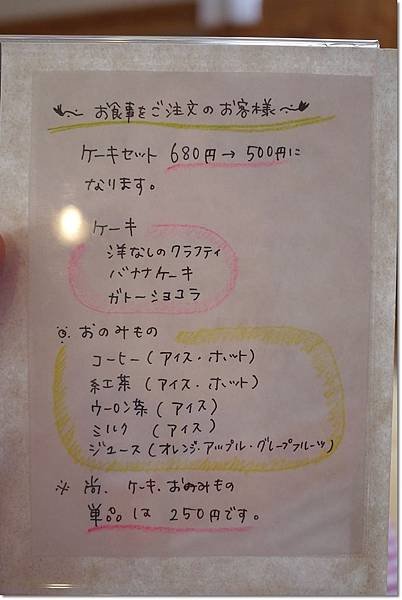 お食事をご注文のお客様
ケーキセット 680円→500円に
なります。
ケーキ
洋なしのクラフティ
バナナケーキ
ガトーショコラ
◎ おのみもの
コーヒー(アイス・ホット)
紅茶(アイス・ホット)
ウーロン茶(アイス)
ミルク (アイス)
ジュース(オレンジ・アップル・グレープフルーツ)
※ 尚、ケーキ・おのみもの
単品は 250円です。